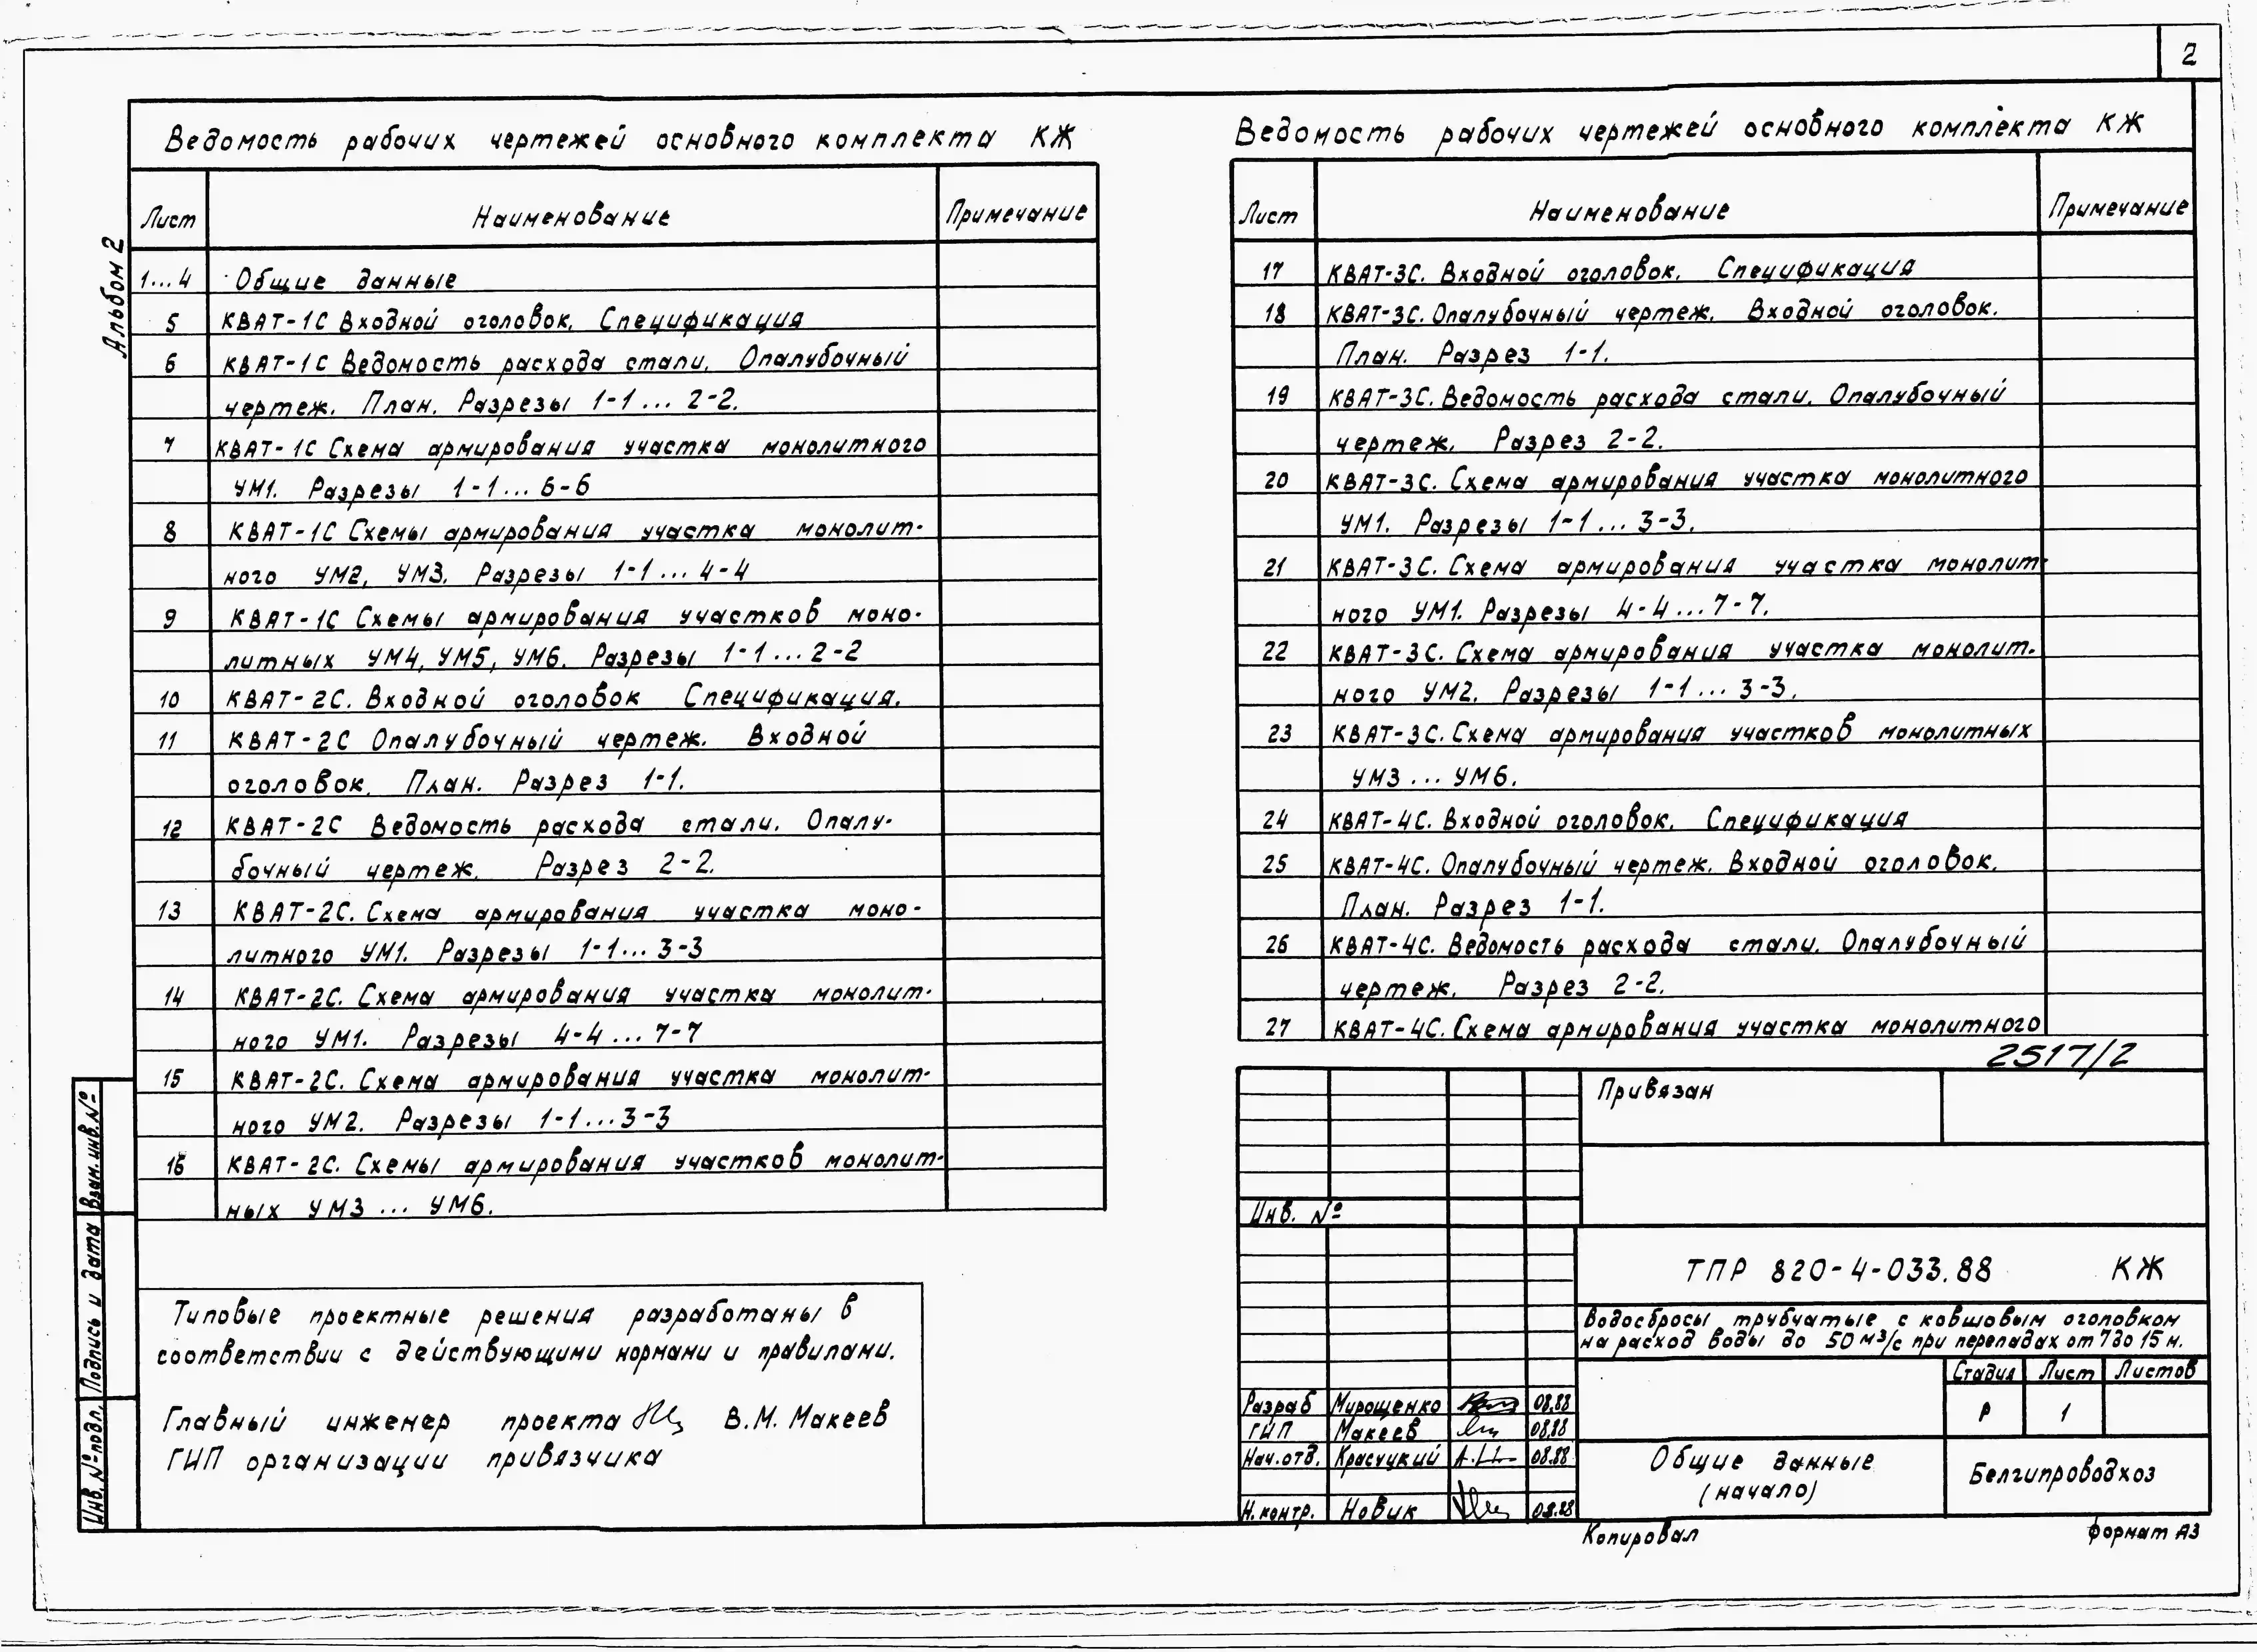 2
Альбом 2
Ведомость рабочих чертежей основного комплекта КЖ
Лист Наименование Примечание
1...4 Общие данные
5 КВАТ-1С Входной оголовок. Спецификация
6 КВАТ-1С Ведомость расхода стали. Опалубочный
чертеж. План. Разрезы 1-1...2-2.
7 КВАТ-1С Схема армирования участка монолитного
УМ1. Разрезы 1-1...6-6
8 КВАТ-1С Схемы армирования участка монолит-
ного УМ2, УМ3. Разрезы 1-1...4-4
9 КВАТ-1С Схемы армирования участков моно-
литных УМ4, УМ5, УМ6. Разрезы 1-1...2-2
10 КВАТ-2С. Входной оголовок Спецификация.
11 КВАТ-2С Опалубочный чертеж. Входной
оголовок. План. Разрез 1-1.
12 КВАТ-2С Ведомость расхода стали. Опалу-
бочный чертеж. Разрез 2-2.
13 КВАТ-2С. Схема армирования участка моно-
литного УМ1. Разрезы 1-1...3-3
14 КВАТ-2С. Схема армирования участка монолит-
ного УМ1. Разрезы 4-4...7-7
15 КВАТ-2С. Схема армирования участка монолит-
ного УМ2. Разрезы 1-1...3-3
16 КВАТ-2С. Схемы армирования участков монолит-
ных УМ3 ... УМ6.
Типовые проектные решения разработаны в
соответствии с действующими нормами и правилами.
Главный инженер проекта В.М. Макеев
ГИП организации привязчика
Взам. инв. №
Подпись и дата
Инв. № подл.
Ведомость рабочих чертежей основного комплекта КЖ
Лист Наименование Примечание
17 КВАТ-3С. Входной оголовок. Спецификация
18 КВАТ-3С. Опалубочный чертеж. Входной оголовок.
План. Разрез 1-1.
19 КВАТ-3С. Ведомость расхода стали. Опалубочный
чертеж. Разрез 2-2.
20 КВАТ-3С. Схема армирования участка монолитного
УМ1. Разрезы 1-1...3-3.
21 КВАТ-3С. Схема армирования участка монолит-
ного УМ1. Разрезы 4-4...7-7.
22 КВАТ-3С. Схема армирования участка монолит-
ного УМ2. Разрезы 1-1...3-3.
23 КВАТ-3С. Схема армирования участков монолитных
УМ3 ... УМ6.
24 КВАТ-4С. Входной оголовок. Спецификация
25 КВАТ-4С. Опалубочный чертеж. Входной оголовок.
План. Разрез 1-1.
26 КВАТ-4С. Ведомость расхода стали. Опалубочный
чертеж. Разрез 2-2.
27 КВАТ-4С. Схема армирования участка монолитного
2517/2
Привязан
Инв. №
ТПР 820-4-033.88 КЖ
Водосбросы трубчатые с ковшовым оголовком
на расход воды до 50 м³/с при перепадах от 7 до 15 м.
Стадия Лист Листов
Р 1
Разраб Мирощенко 08.88
ГИП Макеев 08.88
Нач. отд. Красуцкий 08.88
Н. контр. Новик 08.88
Общие данные
(начало)
Белгипроводхоз
Копировал
формат А3